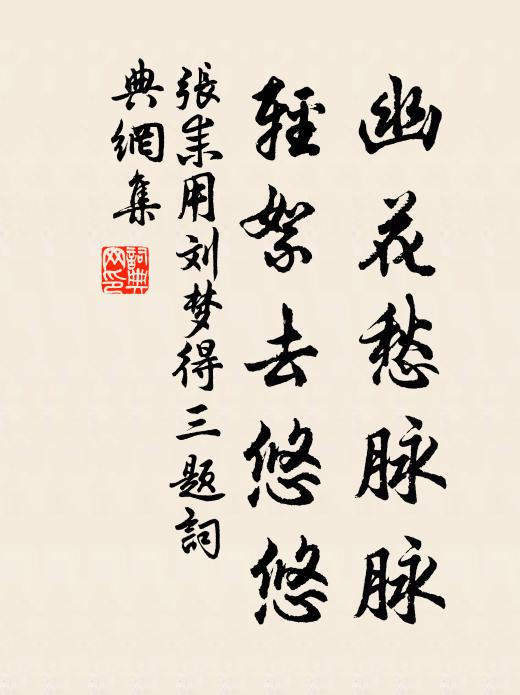 幽花愁脉脉
輕絮去悠悠
張耒用刘梦得三题詞
典網集
詞典
网印